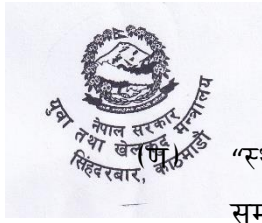 नेपाल सरकार
युवा तथा खेलकुद मन्त्रालय
सिंहदरबार, काठमाडौं
(ण) “स्
सम